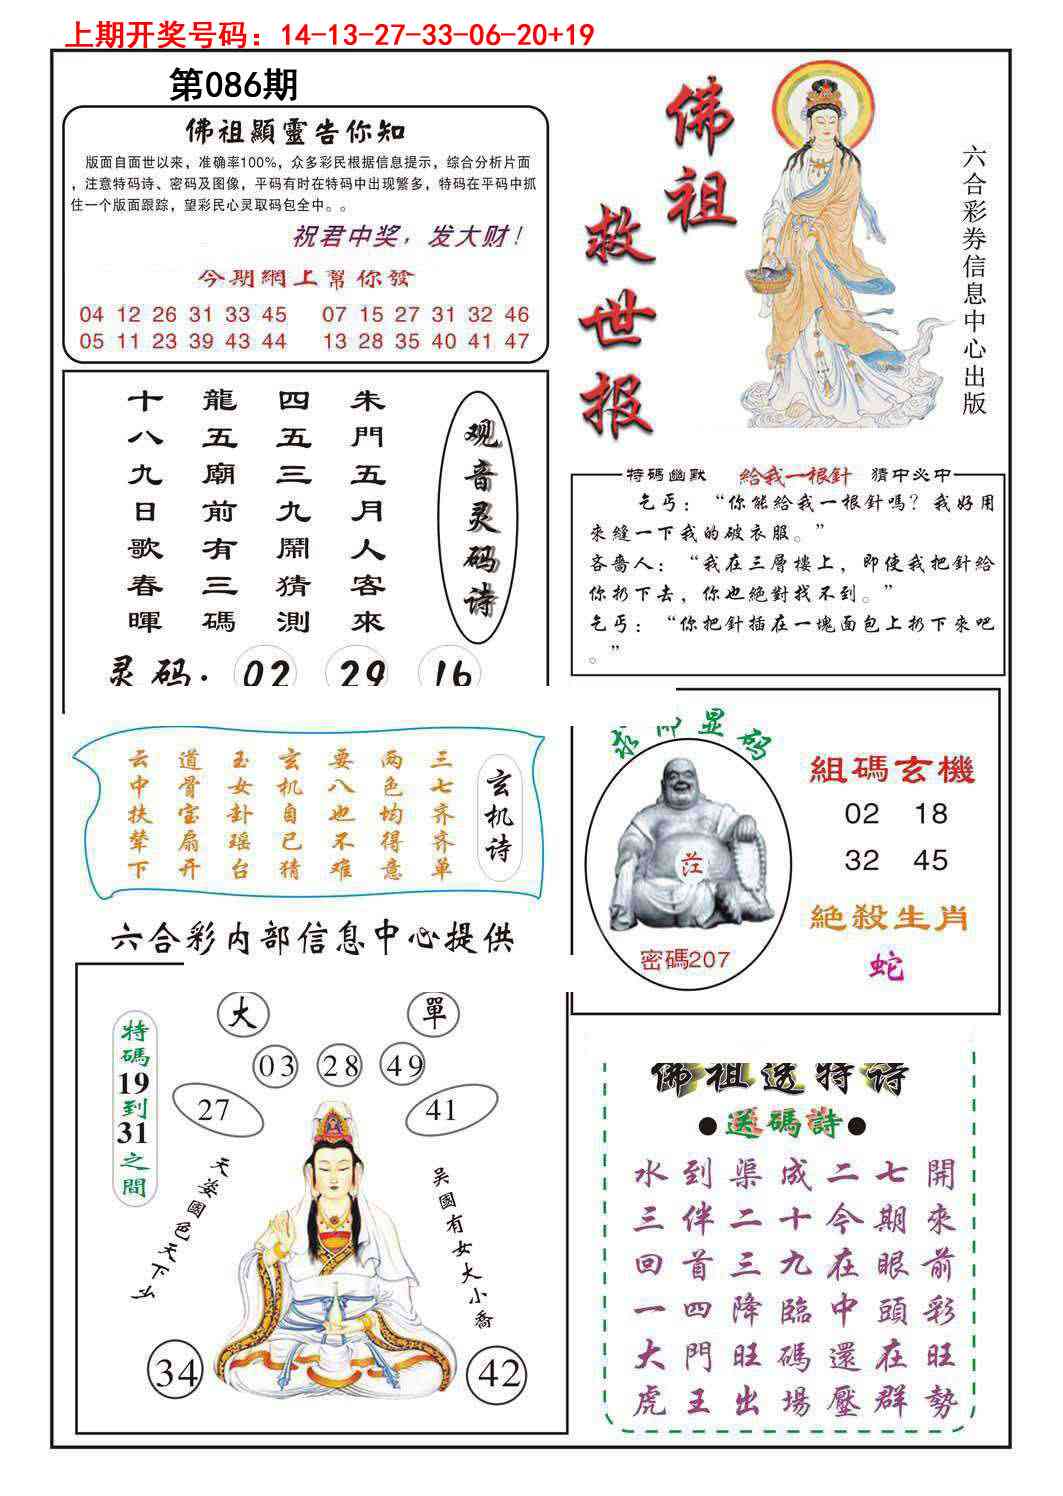 上期开奖号码：14-13-27-33-06-20+19
第086期
佛祖顯靈告你知
版面自面世以来，准确率100%，众多彩民根据信息提示，综合分析片面
，注意特码诗、密码及图像，平码有时在特码中出现繁多，特码在平码中抓
住一个版面跟踪，望彩民心灵取码包全中。。
祝君中奖，发大财！
今期網上幫你發
04 12 26 31 33 45 07 15 27 31 32 46
05 11 23 39 43 44 13 28 35 40 41 47
佛祖
救世报
六合彩券信息中心出版
观音灵码诗
朱門五月人客來
四五三九鬧猜測
龍五廟前有三碼
十八九日歌春暉
灵码. 02 29 16
特碼幽默 給我一根針 猜中必中
乞丐：“你能給我一根針嗎？我好用
來縫一下我的破衣服。”
吝嗇人：“我在三層樓上，即使我把針給
你扔下去，你也絕對找不到。”
乞丐：“你把針插在一塊面包上扔下來吧
。”
玄机诗
三七齐齐单
两色均得意
要八也不难
玄机自已猜
玉女卦瑶台
道骨宝扇开
云中扶辇下
六合彩内部信息中心提供
显码
茳
密碼207
組碼玄機
02 18
32 45
絕殺生肖
蛇
特碼19到31之間
大 單
03 28 49
27 41
天姿國色天下
吴國有女大小喬
34 42
佛祖透特诗
●送碼詩●
水到渠成二七開
三伴二十今期來
回首三九在眼前
一四降臨中頭彩
大門旺碼還在旺
虎王出場壓群勢